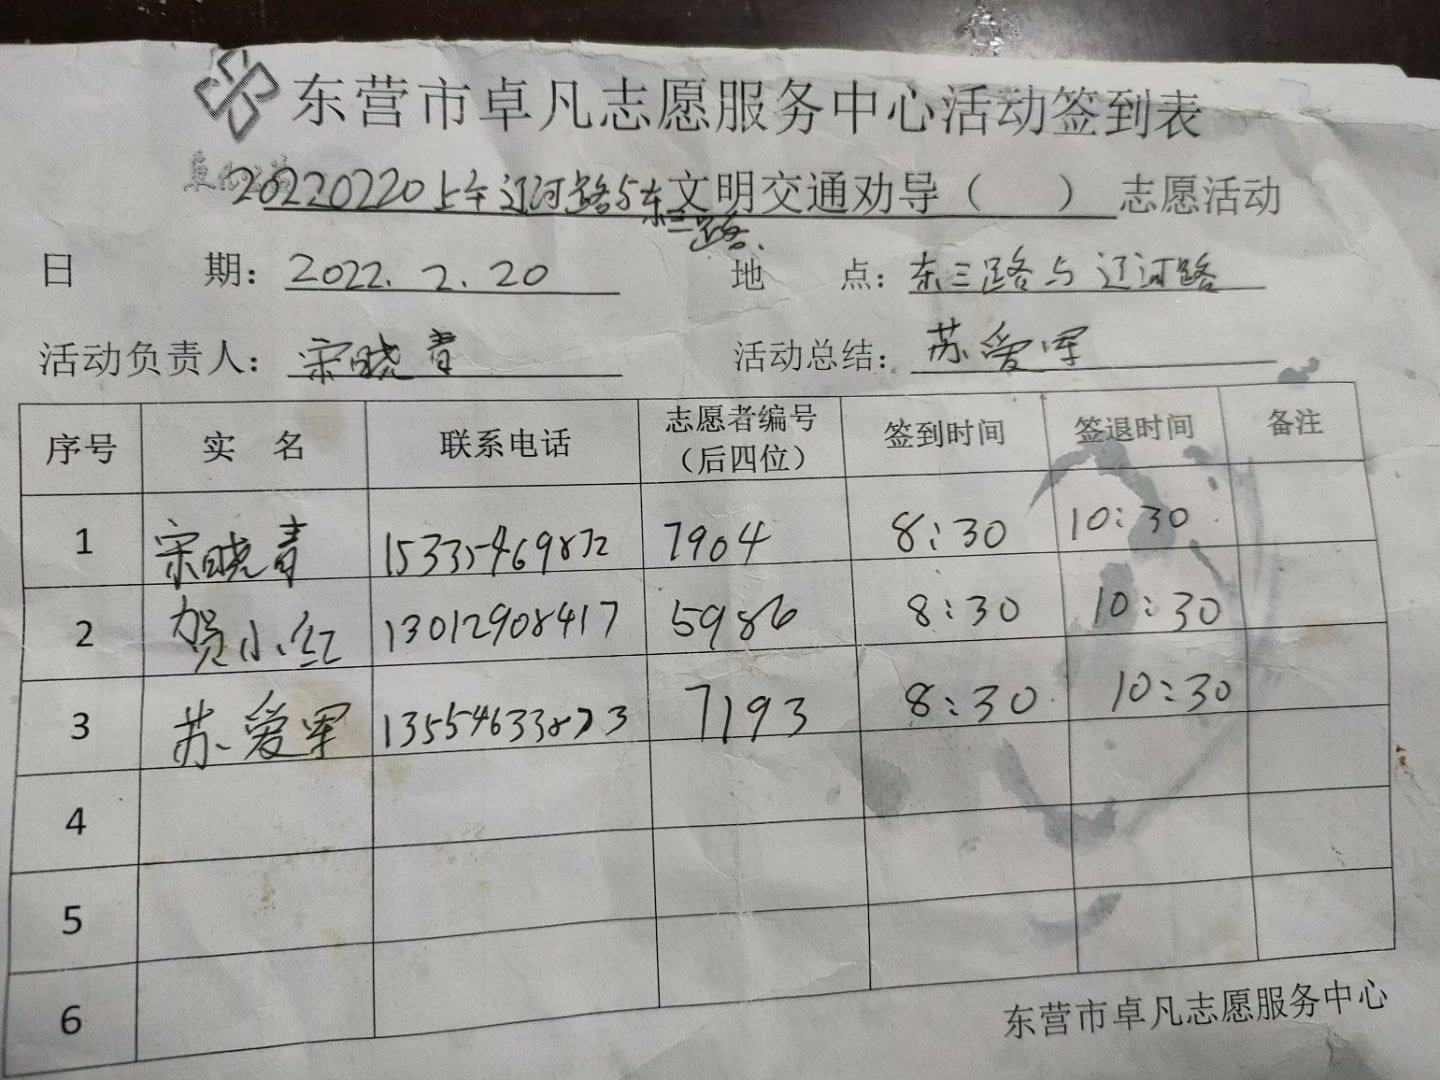 东营市卓凡志愿服务中心活动签到表
20220220上午辽河路与东三路 文明交通劝导（ ）志愿活动
日 期：2022.2.20 地 点：东三路与辽河路
活动负责人：宋晓青 活动总结：苏爱军
序号 实 名 联系电话 志愿者编号（后四位） 签到时间 签退时间 备注
1 宋晓青 15335469872 7904 8:30 10:30
2 贺小红 13012908417 5986 8:30 10:30
3 苏爱军 13554633873 7193 8:30 10:30
4
5
6
东营市卓凡志愿服务中心